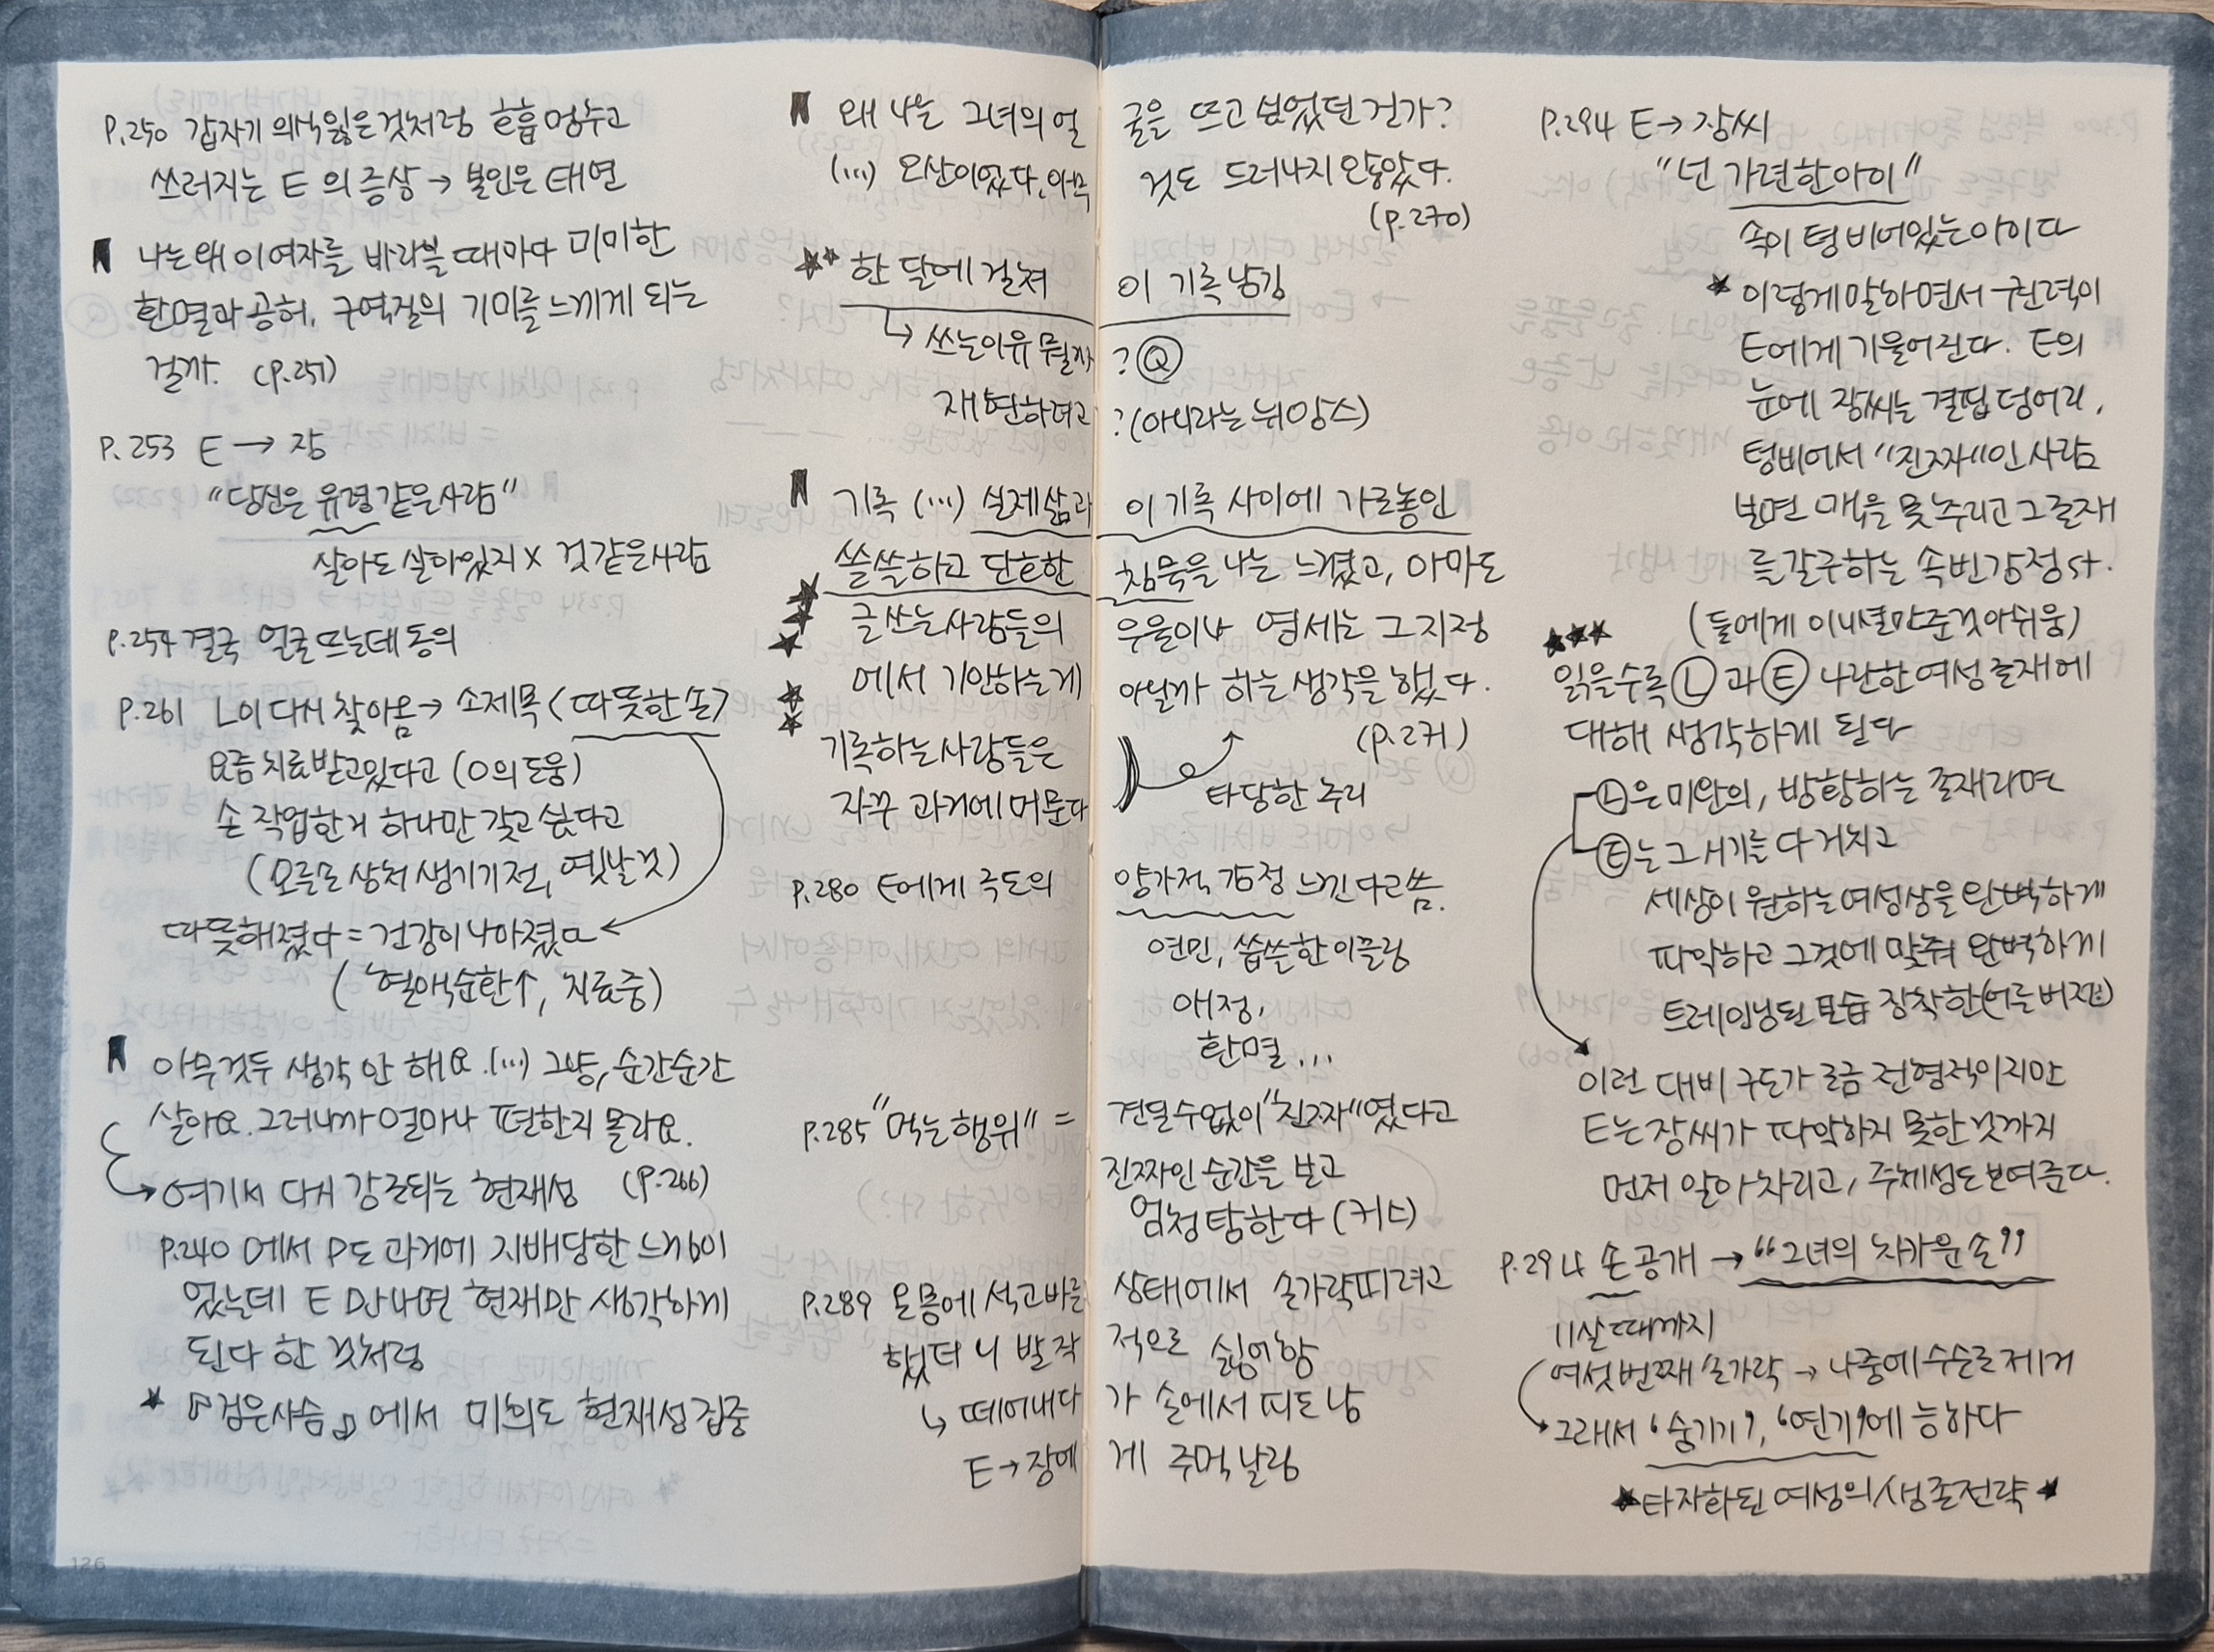 P.250 갑자기 의식잃은것처럼 호흡 멈추고
쓰러지는 E의 증상 → 본인은 태연
나는 왜 이 여자를 바라볼 때마다 미미한
환멸과 공허, 구역질의 기미를 느끼게 되는
걸까. (P.251)
P.253 E → 장
"당신은 유령 같은사람"
살아도 살아있지 X 것 같은사람
P.254 결국 얼굴 뜨는데 동의
P.261 L이 다시 찾아옴 → 소제목 <따뜻한 손>
요즘 치료받고있다고 (O의 도움)
손 작업한거 하나만 갖고 싶다고
(오른손 상처 생기기 전, 옛날 것)
따뜻해졌다 = 건강이 나아졌다
(혈액순환↑, 치료중)
아무것두 생각 안 해요. (…) 그냥, 순간순간
살아요. 그러니까 얼마나 편한지 몰라요.
(P.266)
여기서 다시 강조되는 현재성
P.240 에서 P도 과거에 지배당한 느낌이
있는데 E 만나면 현재만 생각하게
된다 한 것처럼
★ 『검은사슴』에서 미의도 현재성 집중
왜 나는 그녀의 얼굴을 뜨고 싶었던 건가?
(…) 오산이었다. 아무것도 드러나지 않았다.
(P.270)
★★ 한 달에 걸쳐 이 기록 남김
↳ 쓰는이유 뭘까? Q
재현하려고? (아니라는 뉘앙스)
기록 (…) 실제 삶과 이 기록 사이에 가로놓인
쓸쓸하고 단호한 침묵을 나는 느꼈고, 아마도
글쓰는사람들의 우울이나 염세는 그 지점
에서 기인하는게 아닐까 하는 생각을 했다.
(P.271)
기록하는사람들은
자꾸 과거에 머문다
타당한 추리
P.280 E에게 극도의 양가적 감정 느낀다고 씀.
연민, 씁쓸한 이끌림
애정,
환멸 …
P.285 "먹는 행위" = 견딜 수 없이 "진짜"였다고
진짜인 순간을 보고
엄청 탐한다 (키스)
P.289 온몸에 석고 바른 상태에서 손가락 떠려고
했더니 발작적으로 싫어함
↳ 떼어내다가 손에서 피도 남
E → 장에게 주먹 날림
P.294 E → 장씨
"넌 가련한아이"
속이 텅 비어있는 아이다
★ 이렇게 말하면서 권력이
E에게 기울어진다. E의
눈에 장씨는 결핍 덩어리,
텅비어서 "진짜"인 사람
보면 맥을 못추리고 그 존재
를 갈구하는 속 빈 강정 St.
(둘에게 이니셜만 준것 아쉬움)
★★★
읽을수록 L과 E 나란한 여성 존재에
대해 생각하게 된다
L은 미완의, 방황하는 존재라면
E는 그 시기를 다 거치고
세상이 원하는 여성상을 완벽하게
파악하고 그것에 맞춰 완벽하게
트레이닝된 모습 장착한 (어른 버전)
이런 대비 구도가 조금 전형적이지만
E는 장씨가 파악하지 못한 것까지
먼저 알아차리고, 주체성도 보여준다.
P.294 손 공개 → "그녀의 차가운 손"
11살 때까지
여섯 번째 손가락 → 나중에 수술로 제거
그래서 '숨기기', '연기'에 능하다
★타자화된 여성의 생존전략★
126